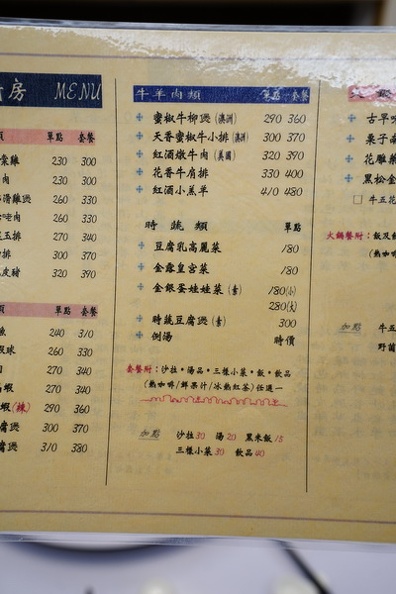 房 MENU
類 單點 套餐
雞 230 300
肉 230 300
滑雞煲 260 330
肉 260 330
玉排 270 340
排 300 370
皮豬 320 390
類 單點 套餐
魚 240 310
蝦球 260 330
270 340
蝦 270 340
蝦(辣) 290 360
煲 300 370
煲 310 380
牛羊肉類 單點 套餐
蜜椒牛柳煲(澳洲) 290 360
天香蜜椒牛小排(澳洲) 300 370
紅酒燉牛肉(美國) 320 390
花香牛肩排 330 400
紅酒小羔羊 410 480
時蔬類 單點
豆腐乳高麗菜 180
金露皇宮菜 180
金銀蛋娃娃菜(素) 180(小)
280(大)
時蔬豆腐煲(素) 300
例湯 時價
套餐附:沙拉•湯品•三樣小菜•飯•飲品
(熱咖啡/鮮果汁/冰熱紅茶)任選一
加點 沙拉30 湯20 黑米飯15
三樣小菜30 飲品40
火鍋
古早
栗子
花雕
黑松
□ 牛五花
火鍋餐附:飯及
(熱咖
加點 牛五
野菌